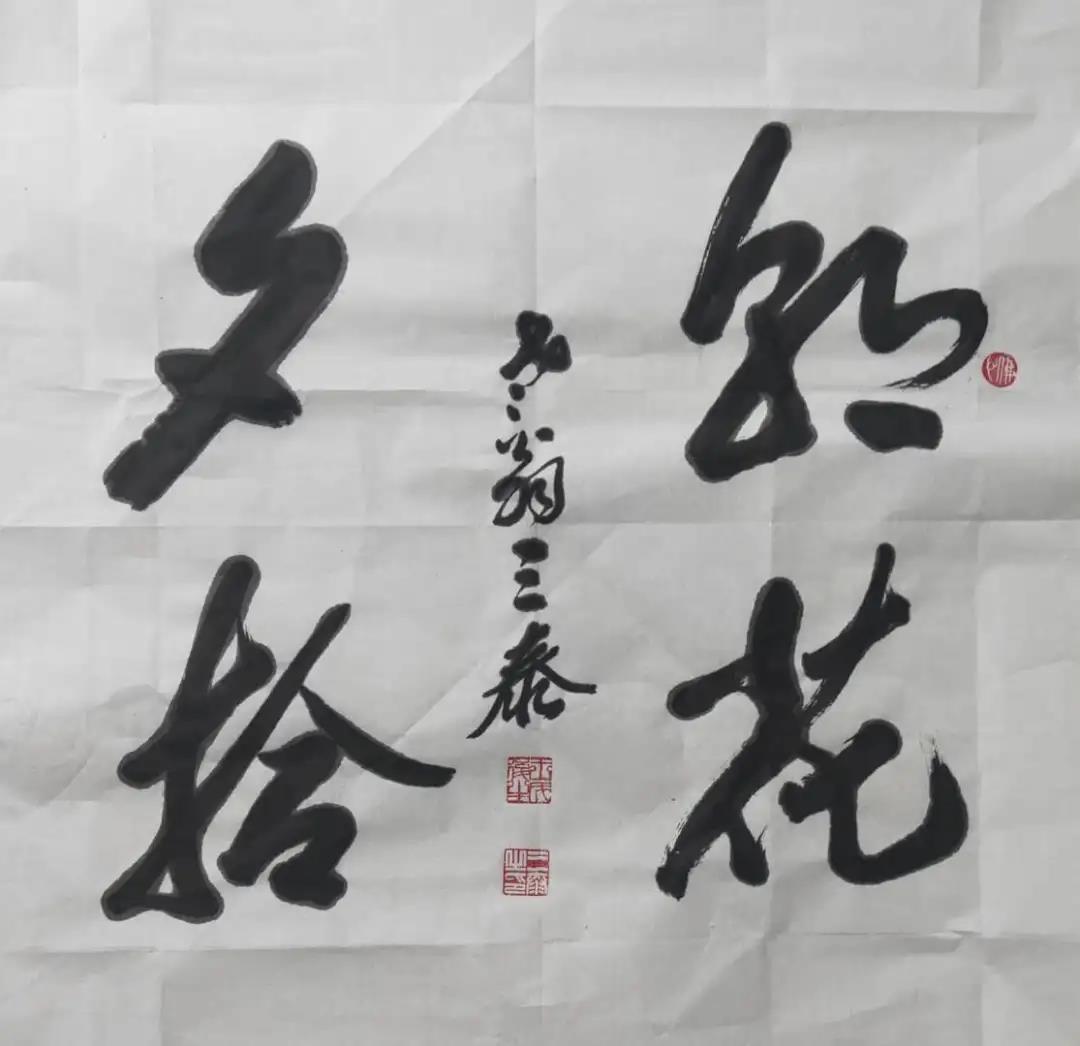 朝花
夕拾
翁三泰